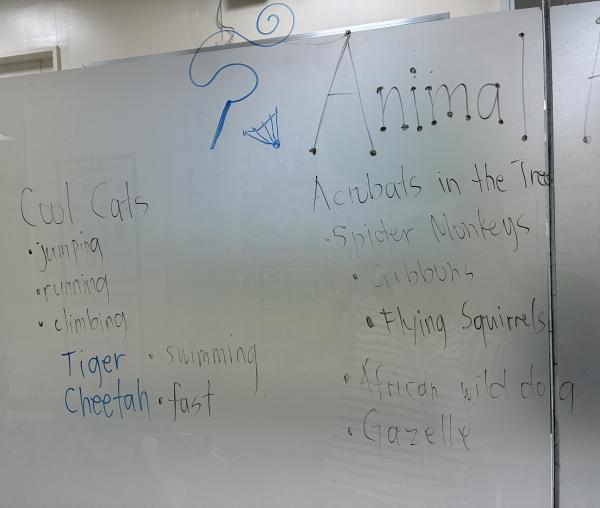 Animal
Cool Cats
• jumping
• running
• climbing
Tiger • swimming
Cheetah • fast
Acrobats in the Tree
• Spider Monkeys
• Gibbons
• Flying Squirrels
• African wild dog
• Gazelle